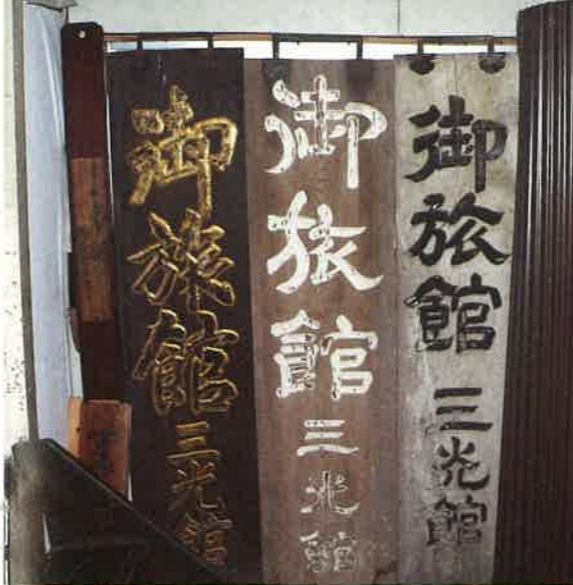 御旅館 三光館
御旅館 三光館
御旅館 三光館